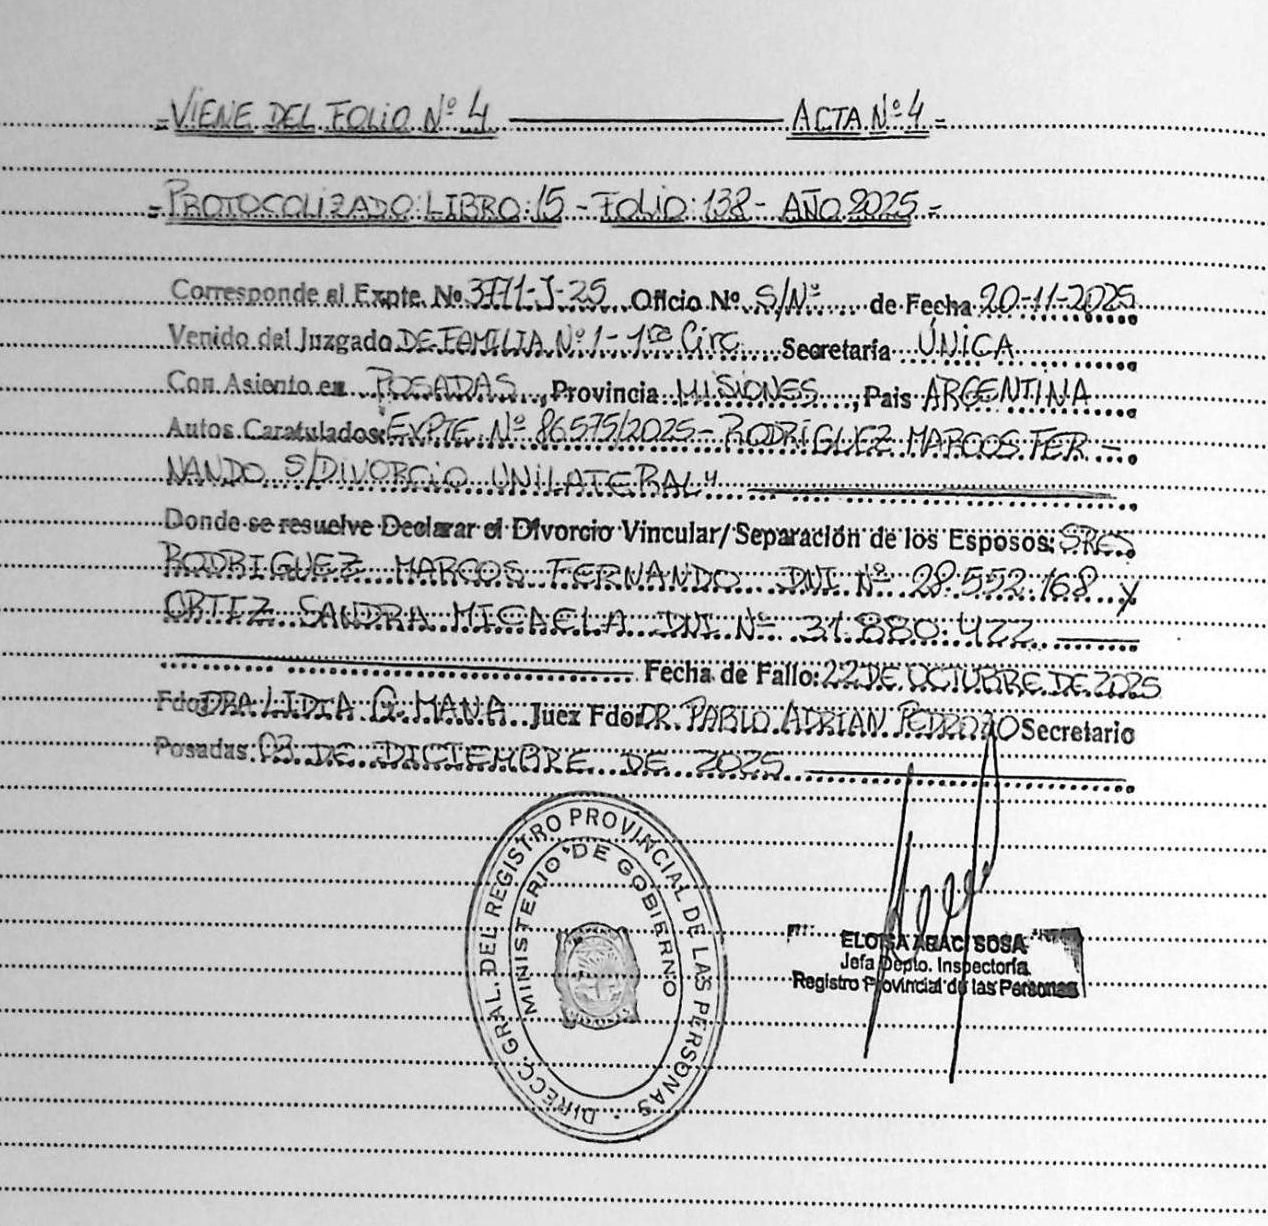 =VIENE DEL FOLIO Nº 4 ACTA Nº 4=
=PROTOCOLIZADO: LIBRO: 15 - FOLIO: 138 - AÑO 2025=
Corresponde al Expte. Nº 3771-J-25 Oficio Nº S/Nº de Fecha 20-11-2025
Venido del Juzgado DE FAMILIA Nº 1 - 1ra Circ. Secretaría ÚNICA
Con Asiento en POSADAS, Provincia MISIONES, Pais ARGENTINA
Autos Caratulados: EXPTE. Nº 86575/2025 - RODRIGUEZ MARCOS FER-
NANDO S/DIVORCIO UNILATERAL"
Donde se resuelve Declarar el Divorcio Vincular/Separación de los Esposos: SRES
RODRIGUEZ MARCOS FERNANDO DNI Nº 28.552.168 Y
ORTIZ SANDRA MICAELA DNI Nº 31.880.422
Fecha de Fallo: 22 DE OCTUBRE DE 2025
Fdo: DRA LIDIA G. MANA Juez Fdo: DR. PABLO ADRIAN PEDROZO Secretario
Posadas: 03 DE DICIEMBRE DE 2025
DIRECC. GRAL. DEL REGISTRO PROVINCIAL DE LAS PERSONAS
MINISTERIO DE GOBIERNO
ELOISA SOSA
Jefa Depto. Inspectoría
Registro Provincial de las Personas